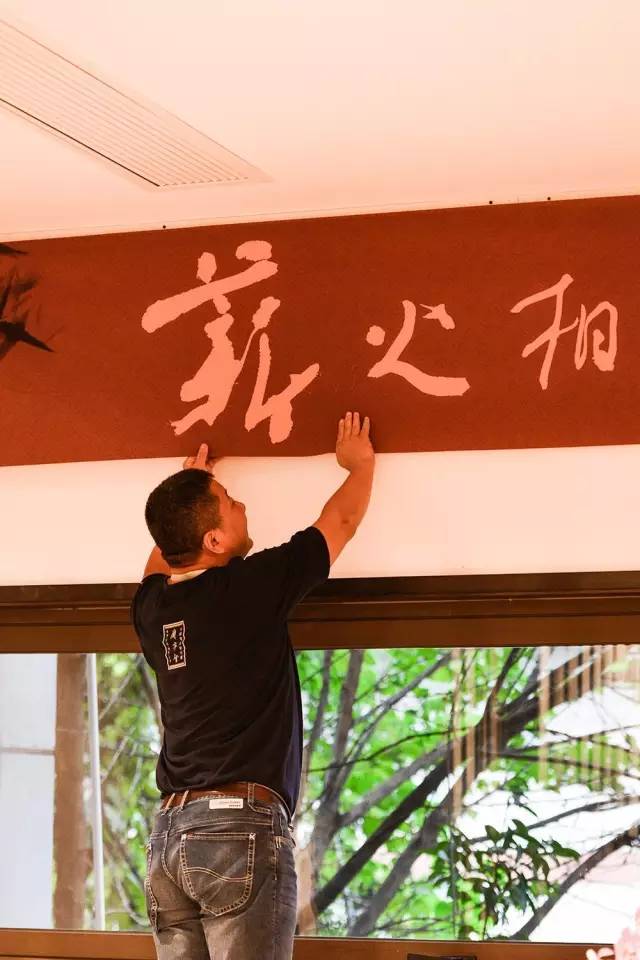 薪火相